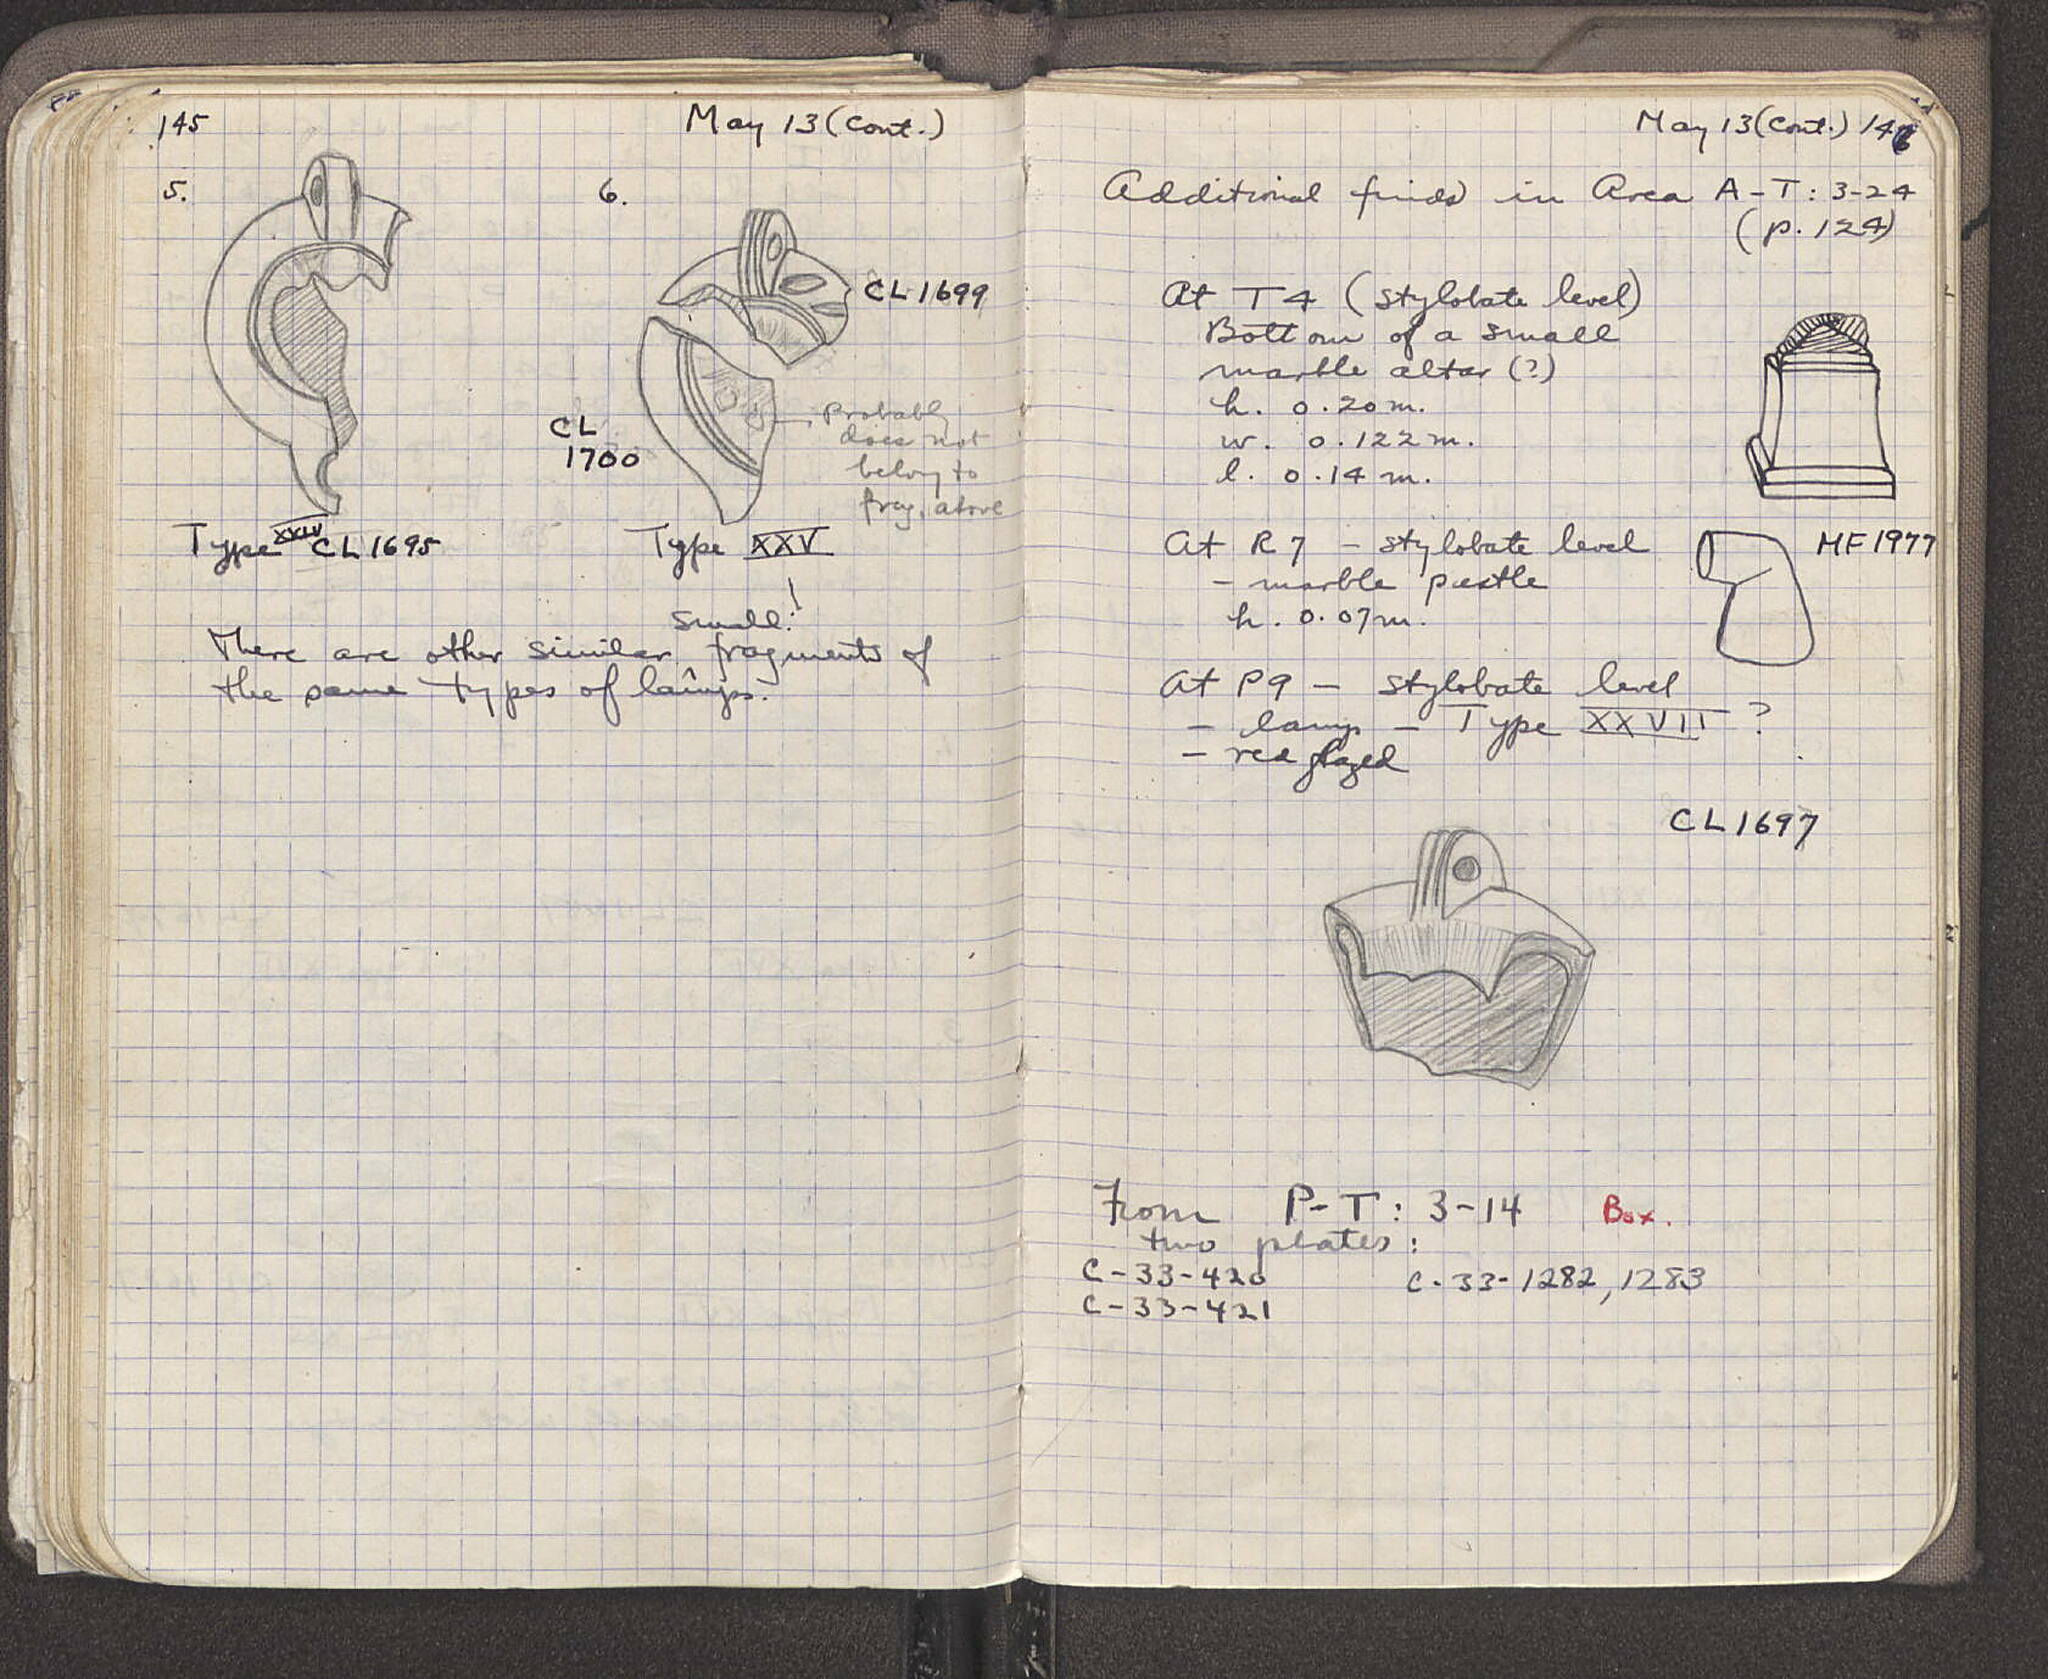 145
May 13 (cont.)
5.
6.
CL 1699
CL
1700
Probably
does not
belong to
frag. above
Type XXIV CL 1695
Type XXV
small!
There are other similar fragments of
the same types of lamps.
May 13 (cont.) 146
Additional finds in Area A-T: 3-24
(p. 124)
At T4 (stylobate level)
Bottom of a small
marble altar (?)
h. 0.20 m.
w. 0.122 m.
l. 0.14 m.
At R7 - stylobate level
MF 1977
- marble pestle
h. 0.07 m.
At P9 - stylobate level
- lamp - Type XXVII ?
- red glazed
CL 1697
From P-T: 3-14 Box.
two plates:
C-33-420
C-33-1282, 1283
C-33-421